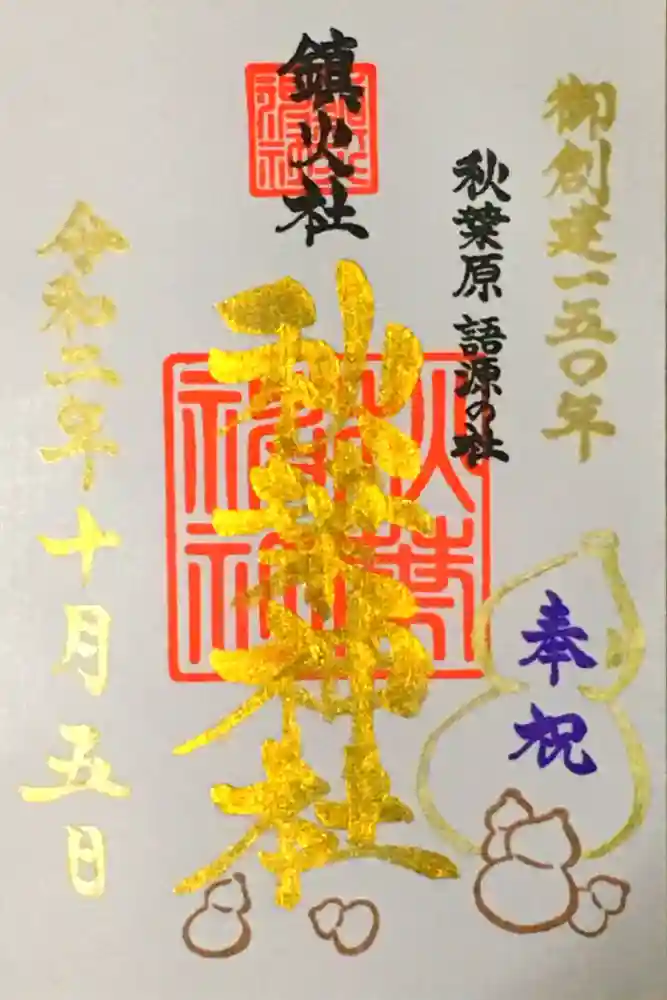 御創建一五〇年
奉祝
秋葉原 語源の社
鎮火社
秋葉神社
令和二年十月五日